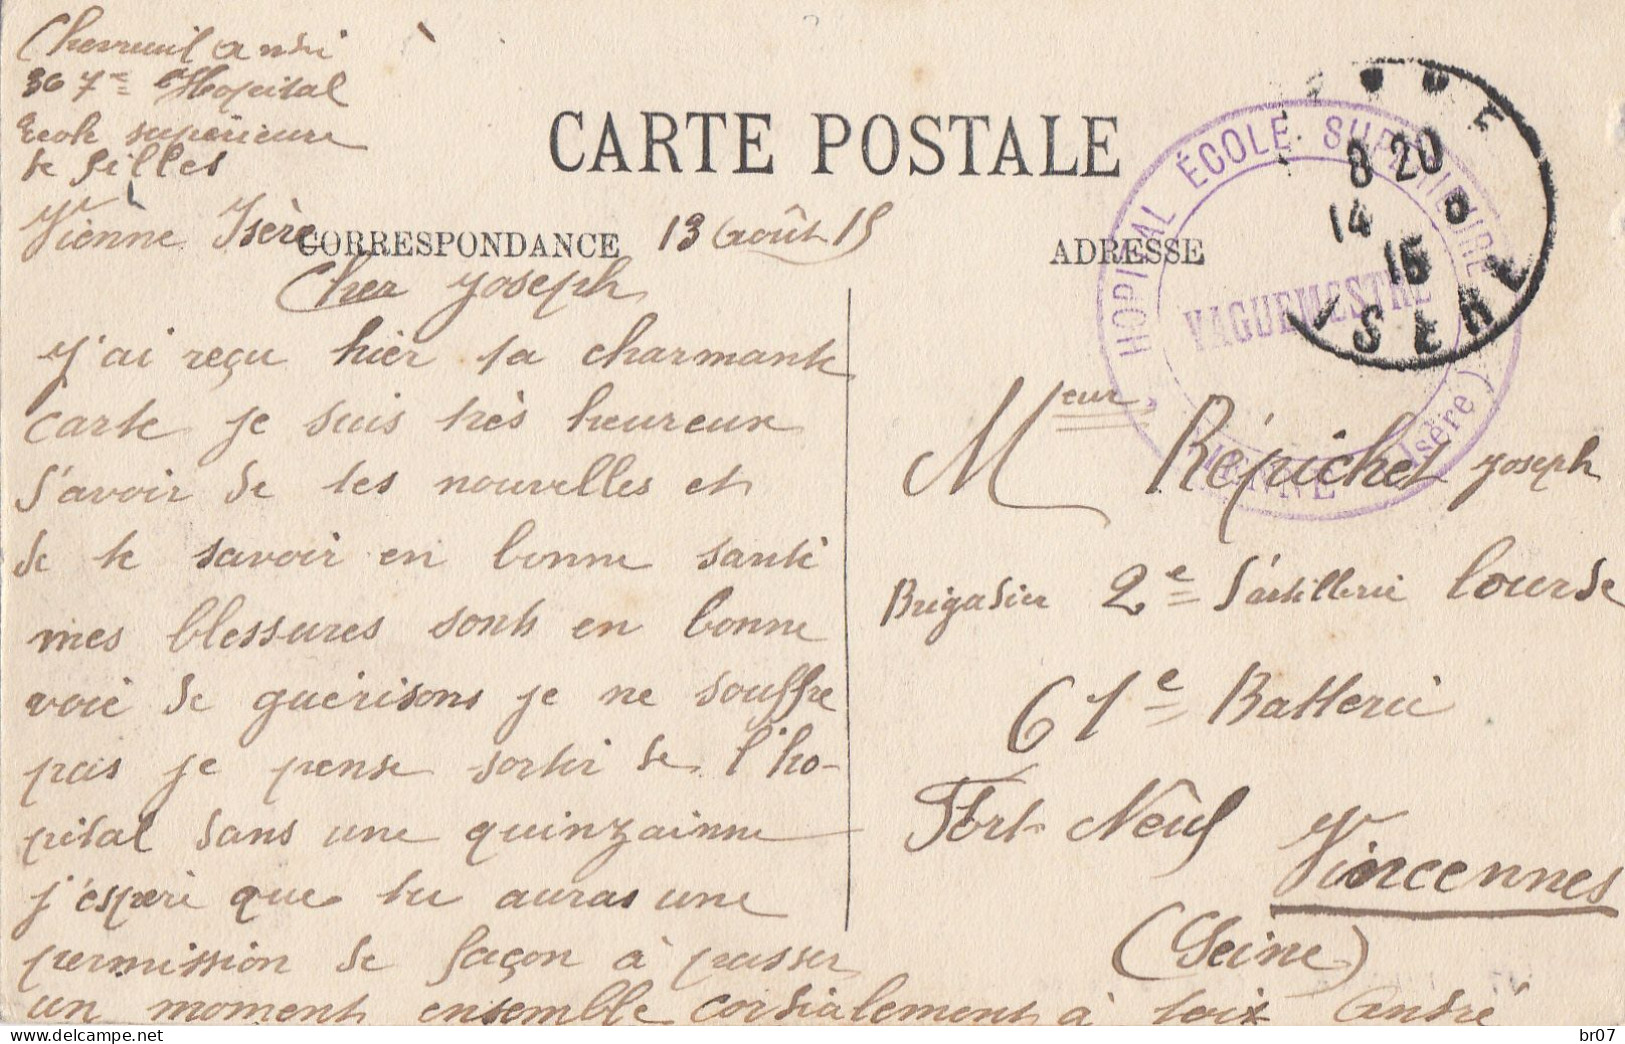 Chevreuil André
367e Hopital
Ecole supérieure
de filles
Vienne Isère
CARTE POSTALE
CORRESPONDANCE
13 Août 15
ADRESSE
HOPITAL ÉCOLE SUPÉRIEURE
VAGUEMESTRE
VIENNE (Isère)
8 20
14 8
15
ISERE
Cher Joseph
J'ai reçu hier ta charmante
carte je suis très heureux
d'avoir de tes nouvelles et
de te savoir en bonne santé
mes blessures sonts en bonne
voie de guérisons je ne souffre
pas je pense sortir de l'ho-
pital dans une quinzainne
j'espère que tu auras une
permission de façon à passer
un moment ensemble cordialement à toix André
Meur Répichet Joseph
Brigadier 2e d'artillerie lourde
61e Batterie
Fort Neuf
Vincennes
(Seine)
br07